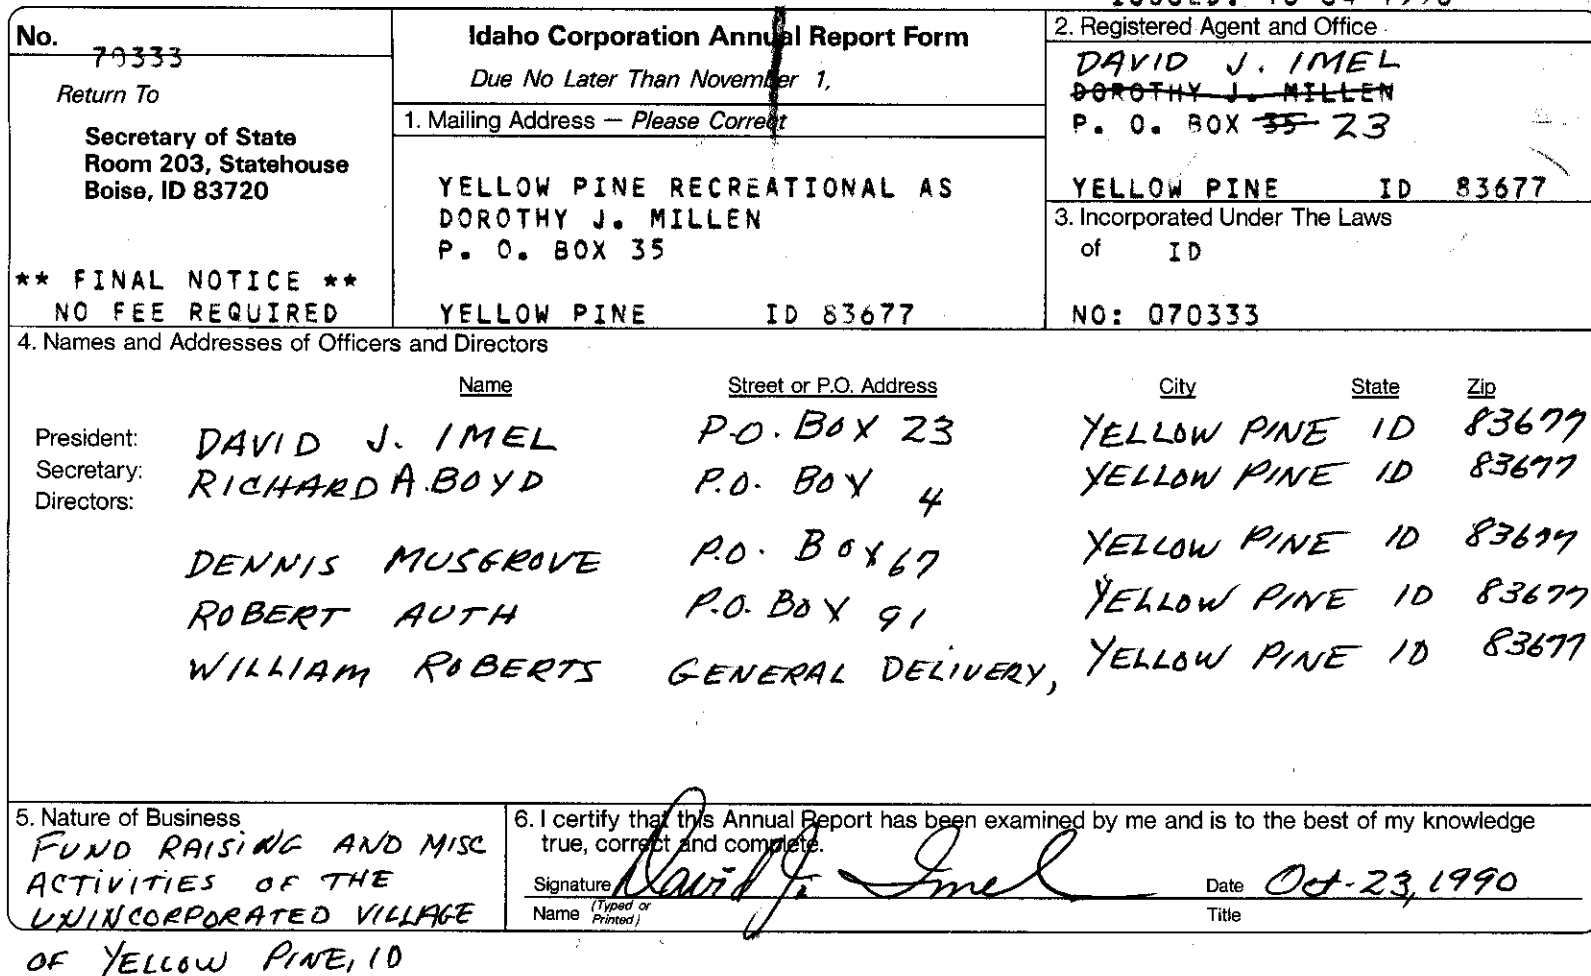 No.
70333
Return To
Secretary of State
Room 203, Statehouse
Boise, ID 83720
** FINAL NOTICE **
NO FEE REQUIRED
Idaho Corporation Annual Report Form
Due No Later Than November 1,
1. Mailing Address — Please Correct
YELLOW PINE RECREATIONAL AS
DOROTHY J. MILLEN
P. O. BOX 35
YELLOW PINE ID 83677
2. Registered Agent and Office
DAVID J. IMEL
DOROTHY J. MILLEN
P. O. BOX 35 23
YELLOW PINE ID 83677
3. Incorporated Under The Laws
of ID
NO: 070333
4. Names and Addresses of Officers and Directors
Name Street or P.O. Address City State Zip
President: DAVID J. IMEL P.O. BOX 23 YELLOW PINE ID 83677
Secretary: RICHARD A. BOYD P.O. BOX 4 YELLOW PINE ID 83677
Directors:
DENNIS MUSGROVE P.O. BOX 67 YELLOW PINE ID 83677
ROBERT AUTH P.O. BOX 91 YELLOW PINE ID 83677
WILLIAM ROBERTS GENERAL DELIVERY, YELLOW PINE ID 83677
5. Nature of Business
FUND RAISING AND MISC
ACTIVITIES OF THE
UNINCORPORATED VILLAGE
OF YELLOW PINE, ID
6. I certify that this Annual Report has been examined by me and is to the best of my knowledge
true, correct and complete.
Signature David J. Imel Date Oct-23, 1990
Name (Typed or Printed) Title